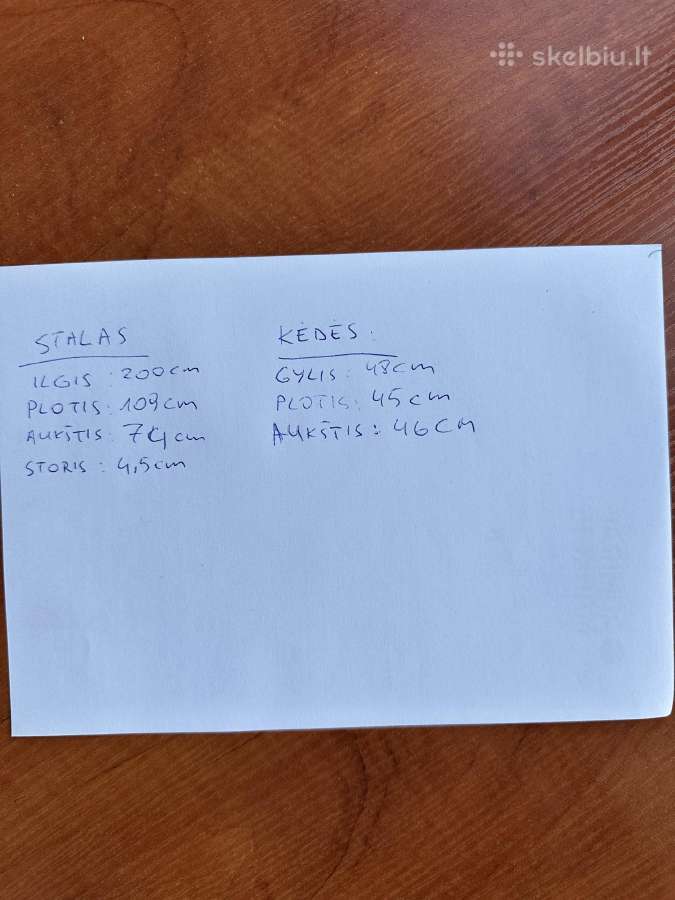 skelbiu.lt
STALAS
ILGIS : 200cm
PLOTIS : 109cm
AUKŠTIS : 74cm
STORIS : 4,5cm
KĖDĖS :
GYLIS : 48cm
PLOTIS : 45cm
AUKŠTIS : 46CM